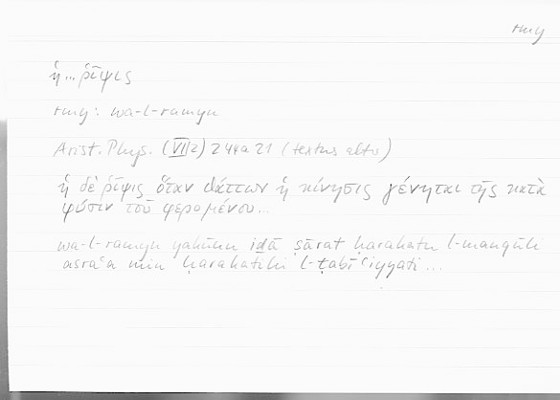 rmy
ἡ ... ῥῖψις
rmy: wa-l-ramyu
Arist. Phys. (VII 2) 244a 21 (textus alter)
ἡ δὲ ῥῖψις ὅταν θάττων ἡ κίνησις γένηται τῆς κατὰ
φύσιν τοῦ φερομένου...
wa-l-ramyu yakūnu iḏā ṣārat ḥarakatu l-manqūli
asraʿa min ḥarakatihi l-ṭabīʿiyyati ...